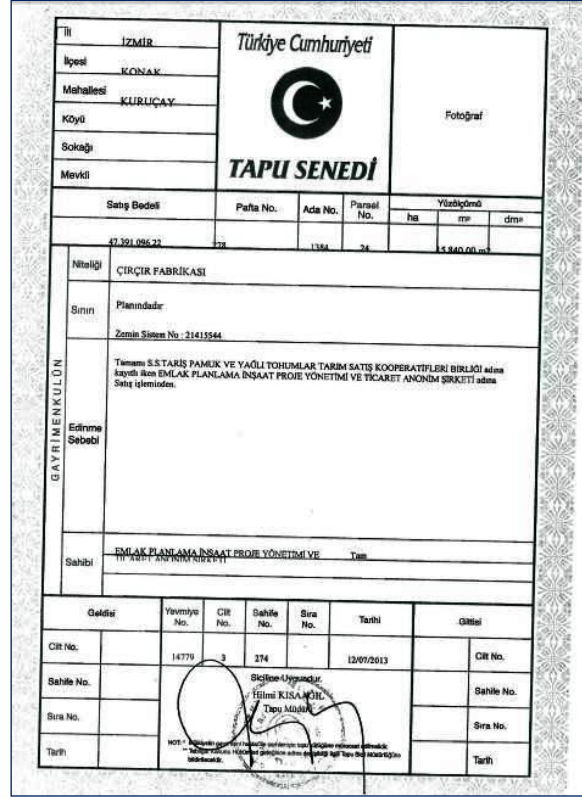 İli İZMİR
İlçesi KONAK
Mahallesi KURUÇAY
Köyü
Sokağı
Mevkii
Türkiye Cumhuriyeti
TAPU SENEDİ
Fotoğraf
Satış Bedeli Pafta No. Ada No. Parsel No. Yüzölçümü
ha m² dm²
47.391.096,22 228 1384 24 15.840,00 m2
GAYRİMENKULÜN
Niteliği ÇIRÇIR FABRİKASI
Sınırı Planındadır
Zemin Sistem No : 21415544
Edinme Sebebi
Tamamı S.S.TARİŞ PAMUK VE YAĞLI TOHUMLAR TARIM SATIŞ KOOPERATİFLERİ BİRLİĞİ adına
kayıtlı iken EMLAK PLANLAMA İNŞAAT PROJE YÖNETİMİ VE TİCARET ANONİM ŞİRKETİ adına
Satış işleminden.
Sahibi
EMLAK PLANLAMA İNŞAAT PROJE YÖNETİMİ VE Tam
TİCARET ANONİM ŞİRKETİ
Geldisi Yevmiye No. Cilt No. Sahife No. Sıra No. Tarihi Gittisi
Cilt No. 14779 3 274 12/07/2013 Cilt No.
Sahife No. Siciline Uygundur. Sahife No.
Hilmi
Tapu Müdürü
Sıra No. Sıra No.
Tarih Tarih
NOT: *